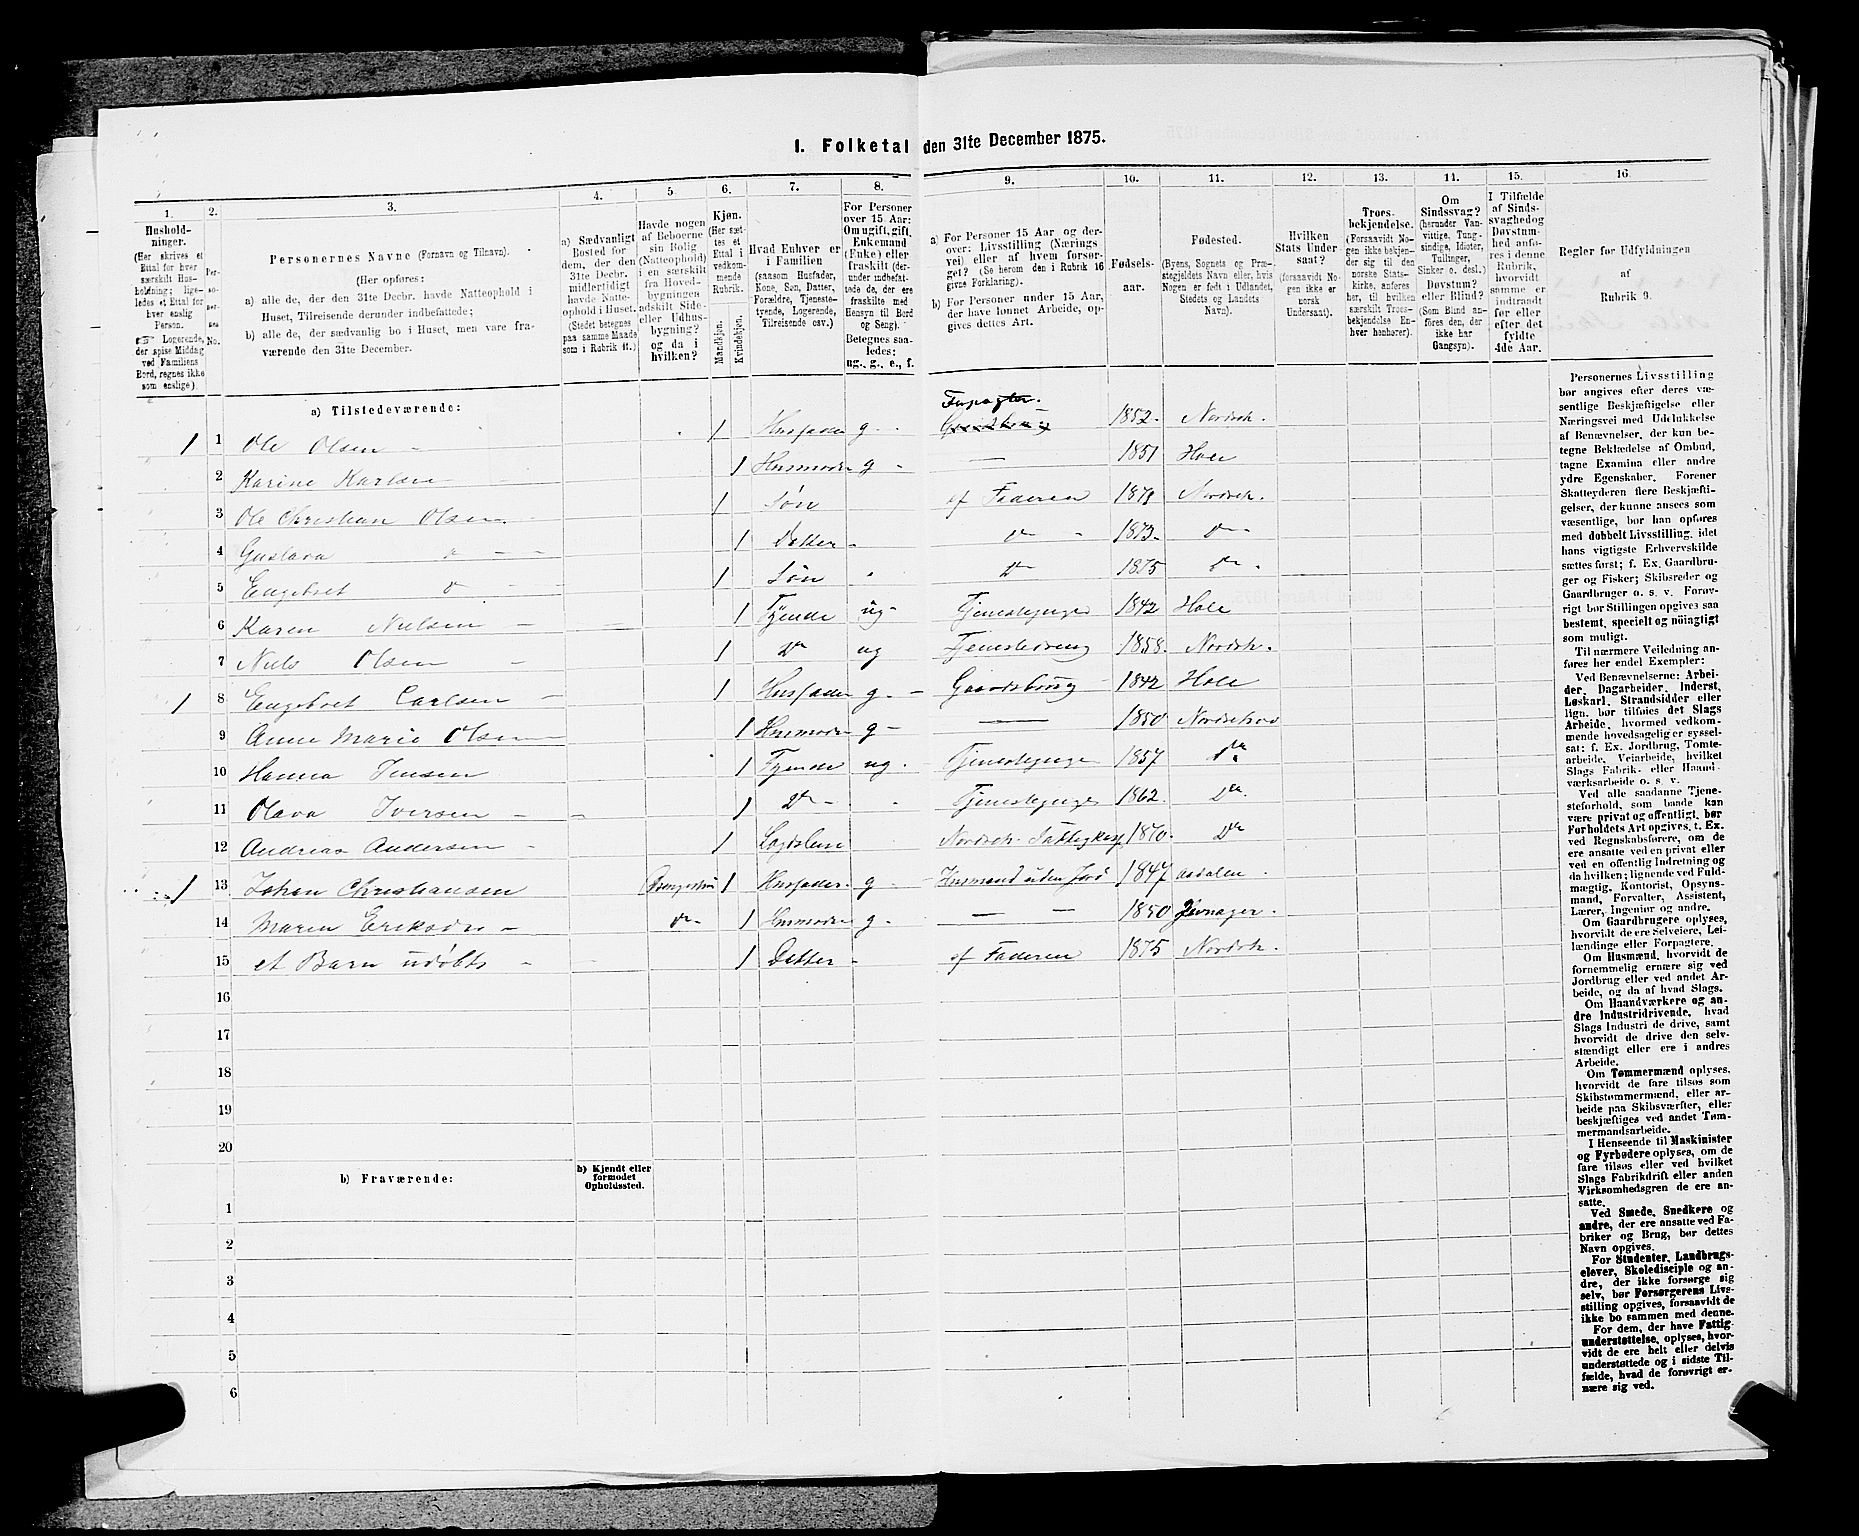 1. Folketal den 31te December 1875.
1. 2. 3. 4. 5. 6. 7. 8. 9. 10. 11. 12. 13. 14. 15. 16.
Husholdninger.
(Her skrives et Ettal for hver særskilt Husholdning; ligeledes et Ettal for hver enslig Person.
Logerende, der spise Middag ved Familiens Bord, regnes ikke som enslige).
Personernes No.
Personernes Navne (Fornavn og Tilnavn).
(Her opføres:
a) alle de, der den 31te Decbr. havde Natteophold i
Huset, Tilreisende derunder indbefattede;
b) alle de, der sædvanlig bo i Huset, men vare fra-
værende den 31te December.
a) Sædvanligt
Bosted for
dem, der den
31te Decbr.
midlertidigt
havde Natte-
ophold i Huset.
(Stedet betegnes
paa samme Maade
som i Rubrik 11.)
Havde nogen
af Beboerne
sin Bolig
(Natteophold)
i en særskilt
fra Hoved-
bygningen
adskilt Side-
eller Udhus-
bygning?
og da i
hvilken?
Kjøn.
(Her sæt-
tes et
Ettal i
vedkom-
mende
Rubrik.
Mandkjøn.
Kvindekjøn.
Hvad Enhver er
i Familien
(saasom Husfader,
Kone, Søn, Datter,
Forældre, Tjeneste-
tyende, Logerende,
Tilreisende osv.)
For Personer
over 15 Aar:
Om ugift, gift,
Enkemand
(Enke) eller
fraskilt (der-
under indbefat-
tede de, der ere
fraskilte med
Hensyn til Bord
og Seng).
Betegnes saa-
ledes:
ug., g., e., f.
a) For Personer 15 Aar og der-
over: Livsstilling (Nærings-
vei) eller af hvem forsør-
get? (Se herom den i Rubrik 16
givne Forklaring).
b) For Personer under 15 Aar,
der have lønnet Arbeide, op-
gives dettes Art.
Fødsels-
aar.
Fødested.
(Byens, Sognets og Præ-
stegjeldets Navn eller, hvis
Nogen er født i Udlandet,
Stedets og Landets
Navn).
Hvilken
Stats Under-
saat?
(forsaavidt No-
gen ikke er
norsk
Undersaat).
Troes-
bekjendelse.
(Forsaavidt No-
gen ikke bekjen-
der sig til den
norske Stats-
kirke, anføres
her, til hvilket
særskilt Troes-
bekjendelse En-
hver henhører).
Om
Sindssvag?
(herunder Van-
vittige, Tung-
sindige, Idioter,
Tullinger,
Sinker o. desl.)
Døvstum?
eller Blind?
(Som Blind an-
føres den, der
ikke har
Gangsyn).
I Tilfælde
af Sinds-
svaghed og
Døvstum-
hed anfø-
res i denne
Rubrik,
hvorvidt
samme er
indtraadt
før eller
efter det
fyldte
4de Aar.
Regler for Udfyldningen
af
Rubrik 9.
a) Tilstedeværende:
Forpagter.
1 1 Ole Olsen 1 Husfader g. Gaardbrug 1852. Nordreh.
2 Karine Karlsen 1 Husmoder g 1851 Hole
3 Ole Christian Olsen 1 Søn af Faderen 1871 Nordreh.
4 Gustava do 1 Datter do 1873. do
5 Engebret do 1 Søn do 1875 do
6 Karen Nielsen 1 Tyende ug Tjenestepige 1842 Hole
7 Niels Olsen 1 do ug Tjenestedreng 1858. Nordreh.
1 8 Engebret Carlsen 1 Husfader g. Gaardbrug 1842 Hole
9 Anne Marie Olsen 1 Husmoder g 1850 Nordrehov
10 Hanna Jensen 1 Tyende ug. Tjenestepige 1857 do
11 Olava Iversen 1 do Tjenestepige 1862. do
12 Andreas Andersen 1 Lægdslem Nordreh. Fattigkasse 1870. do
1 13 Johan Christiansen 1 Husfader. g Husmand uden Jord 1847 Aadalen
14 Maren Eriksdr do 1 Husmoder g. 1850 Jevnager.
15 et Barn udøbt 1 Datter af Faderen 1875 Nordreh.
16
17
18
19
20
b) Fraværende:
b) Kjendt eller
formodet
Opholdssted.
1
2
3
4
5
6
Personernes Livsstilling
bør angives efter deres væ-
sentlige Beskjæftigelse eller
Næringsvei med Udelukkelse
af Benævnelser, der kun be-
tegne Beklædelse af Ombud,
tagne Examina eller andre
ydre Egenskaber. Forener
Skatteyderen flere Beskjæfti-
gelser, der kunne ansees som
væsentlige, bør han opføres
med dobbelt Livsstilling, idet
hans vigtigste Erhvervskilde
sættes først; f. Ex. Gaardbru-
ger og Fisker; Skibsreder og
Gaardbruger o. s. v. Forøv-
rigt bør Stillingen opgives saa
bestemt, specielt og nøiagtigt
som muligt.
Til nærmere Veiledning an-
føres her endel Exempler:
Ved Benævnelserne: Arbei-
der, Dagarbeider, Inderst,
Løskarl, Strandsidder eller
lign. bør tilføies det Slags
Arbeide, hvormed vedkom-
mende hovedsagelig er syssel-
sat: f. Ex. Jordbrug, Tomte-
arbeide, Veiarbeide, hvilket
Slags Fabrik- eller Haand-
værksarbeide o. s. v.
Ved alle saadanne Tjene-
steforhold, som baade kan
være privat og offentligt, bør
Forholdets Art opgives, t. Ex.
ved Regnskabsførere, om de
ere ansatte ved en privat eller
ved en offentlig Indretning og
da hvilken; lignende ved Fuld-
mægtig, Kontorist, Opsyns-
mand, Forvalter, Assistent,
Lærer, Ingeniør og andre.
Om Gaardbrugere oplyses,
hvorvidt de ere Selveiere, Lei-
lændinge eller Forpagtere.
Om Husmænd, hvorvidt de
fornemmelig ernære sig ved
Jordbrug eller ved andet Ar-
beide, og da af hvad Slags.
Om Haandværkere og an-
dre Industridrivende, hvad
Slags Industri de drive, samt
hvorvidt de drive den selv-
stændigt eller ere i andres
Arbeide.
Om Tømmermænd oplyses,
hvorvidt de fare tilsøs som
Skibstømmermænd, eller ar-
beide paa Skibsværfter, eller
beskjæftiges ved andet Tøm-
mermandsarbeide.
I Henseende til Maskinister
og Fyrbødere oplyses, om de
fare tilsøs eller ved hvilket
Slags Fabrikdrift eller anden
Virksomhedsgren de ere an-
satte.
Ved Smede, Snedkere og
andre, der ere ansatte ved Fa-
briker og Brug, bør dettes
Navn opgives.
For Studenter, Landbrugs-
elever, Skoledisciple og an-
dre, der ikke forsørge sig
selv, bør Forsørgerens Livs-
stilling opgives, forsaavidt de
ikke bo sammen med denne.
For dem, der have Fattig-
understøttelse, oplyses, hvor-
vidt de ere helt eller delvis
understøttede og i sidste Til-
fælde, hvad de forøvrigt er-
nære sig ved.